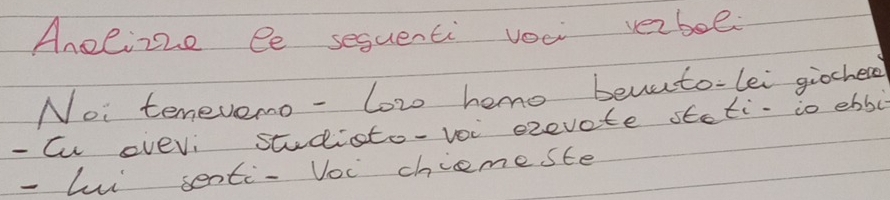 Analizza le seguenti voci verbali
Noi temevamo - loro hanno bevuto - lei giocherà
- tu avevi studiato - voi eravate stati - io ebbi
- lui sentì - Voi chiamaste